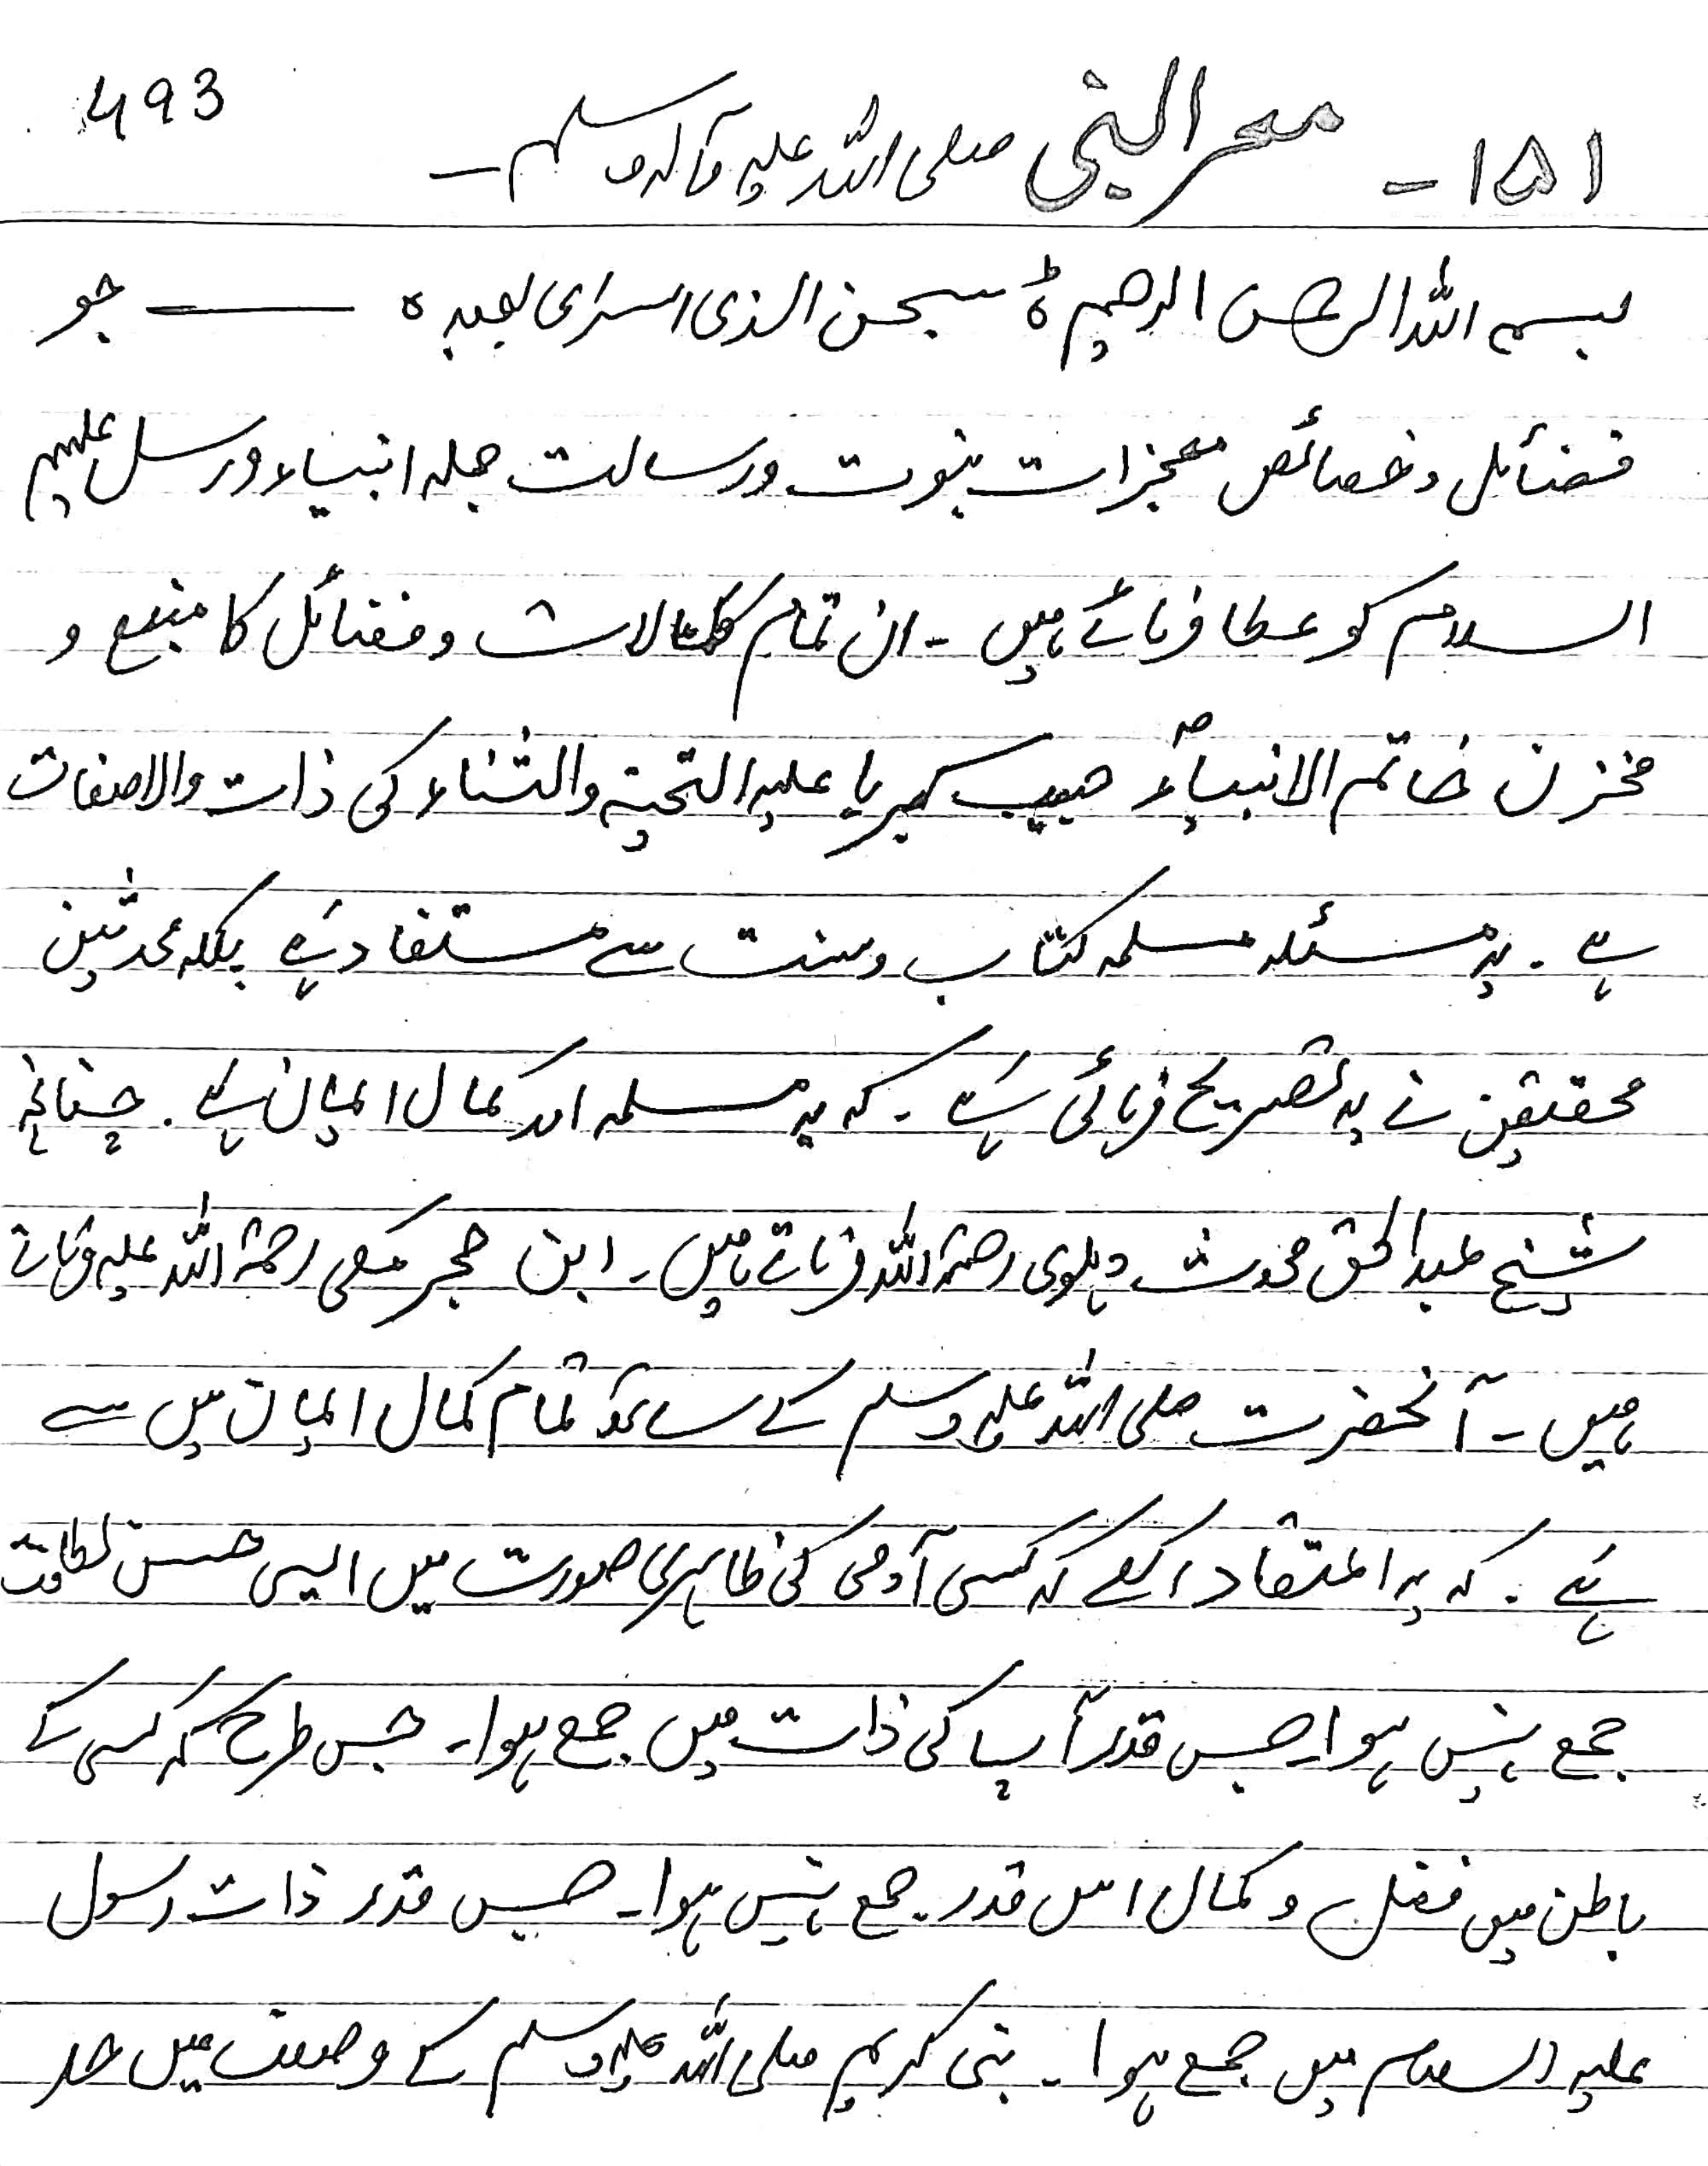 493
۱۵۱ - معراج النبی صلی اللہ علیہ وآلہ وسلم -
بسم اللہ الرحمن الرحیم ۃ سبحن الذی اسرٰی بعبدہ ـــــــ جو
فضائل و خصائص معجزات نبوت و رسالت جملہ انبیاء و رسل علیہم
السلام کو عطا فرمائے ہیں - ان تمام کمالات و فضائل کا منبع و
مخزن خاتم الانبیاءؐ حبیب کبریا علیہ التحیۃ والثناء کی ذات والاصفات
ہے . یہ مسئلہ مسلمہ کتاب و سنت سے مستفاد ہے بلکہ محدثین
محققین نے یہ تصریح فرمائی ہے . کہ یہ مسلمہ امر کمال ایمان ہے . چنانچہ
شیخ عبدالحق محدث دہلوی رحمۃ اللہ فرماتے ہیں - ابن حجر مکی رحمۃ اللہ علیہ فرماتے
ہیں - آنحضرت صلی اللہ علیہ وسلم کے ساتھ تمام کمال ایمان میں سے
ہے . کہ یہ اعتقاد رکھے کہ کسی آدمی کی ظاہری صورت میں ایسی حسن لطافت
جمع نہیں ہوا - جس قدر آپ کی ذات میں جمع ہوا - جس طرح کہ کسی کے
باطن میں فضل و کمال اس قدر جمع نہیں ہوا - جس قدر ذات رسول
علیہ السلام میں جمع ہوا - نبی کریم صلی اللہ علیہ وسلم کے وصف میں حد